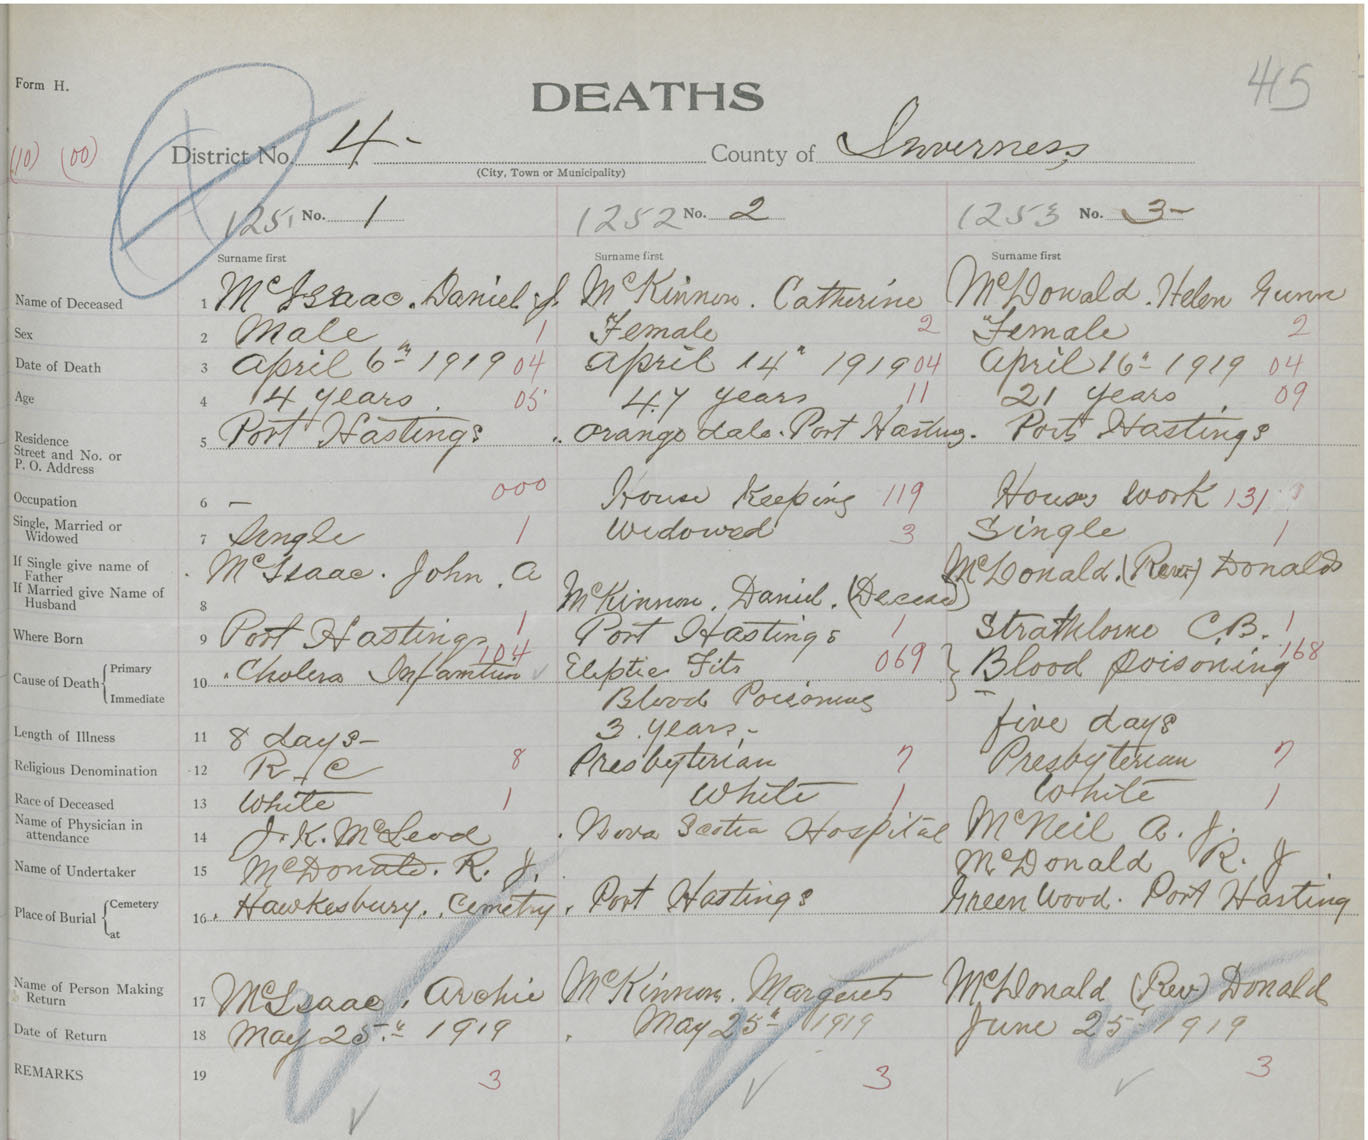 Form H.
DEATHS
415
(10) (00)
District No. 4- County of Inverness
(City, Town or Municipality)
1251 No. 1 1252 No. 2 1253 No. 3-
Surname first Surname first Surname first
Name of Deceased 1 McIsaac. Daniel J. McKinnon. Catherine McDonald. Helen Gunn
Sex 2 Male 1 Female 2 Female 2
Date of Death 3 April 6th 1919 04 April 14th 1919 04 April 16th 1919 04
Age 4 4 years. 05 47 years 11 21 years 09
Residence
Street and No. or
P. O. Address
5 Port Hastings Orangedale. Port Hastings. Port Hastings
Occupation 6 — 000 House Keeping 119 House work 131
Single, Married or
Widowed
7 Single 1 Widowed 3 Single 1
If Single give name of
Father
If Married give Name of
Husband
8 McIsaac. John. A McKinnon. Daniel. (Deceased) McDonald. (Rev) Donald
Where Born 9 Port Hastings 1 Port Hastings 1 Strathlorne C.B. 1
Cause of Death { Primary
Immediate
10 Cholera Infantum 104 Eleptic Fits 069 } Blood Poisoning 168
Blood Poisoning
Length of Illness 11 8 days- 3 years- five days
Religious Denomination 12 R C 8 Presbyterian 7 Presbyterian 7
Race of Deceased 13 White 1 White 1 White 1
Name of Physician in
attendance
14 J. K. McLeod Nova Scotia Hospital McNeil A. J.
Name of Undertaker 15 McDonald. R. J. McDonald R. J
Place of Burial { Cemetery
at
16 Hawkesbury. Cemetry. Port Hastings Green Wood. Port Hasting
Name of Person Making
Return
17 McIsaac. Archie McKinnon. Margaret McDonald (Rev) Donald
Date of Return 18 May 25th 1919 May 25th 1919 June 25th 1919
REMARKS 19 3 3 3